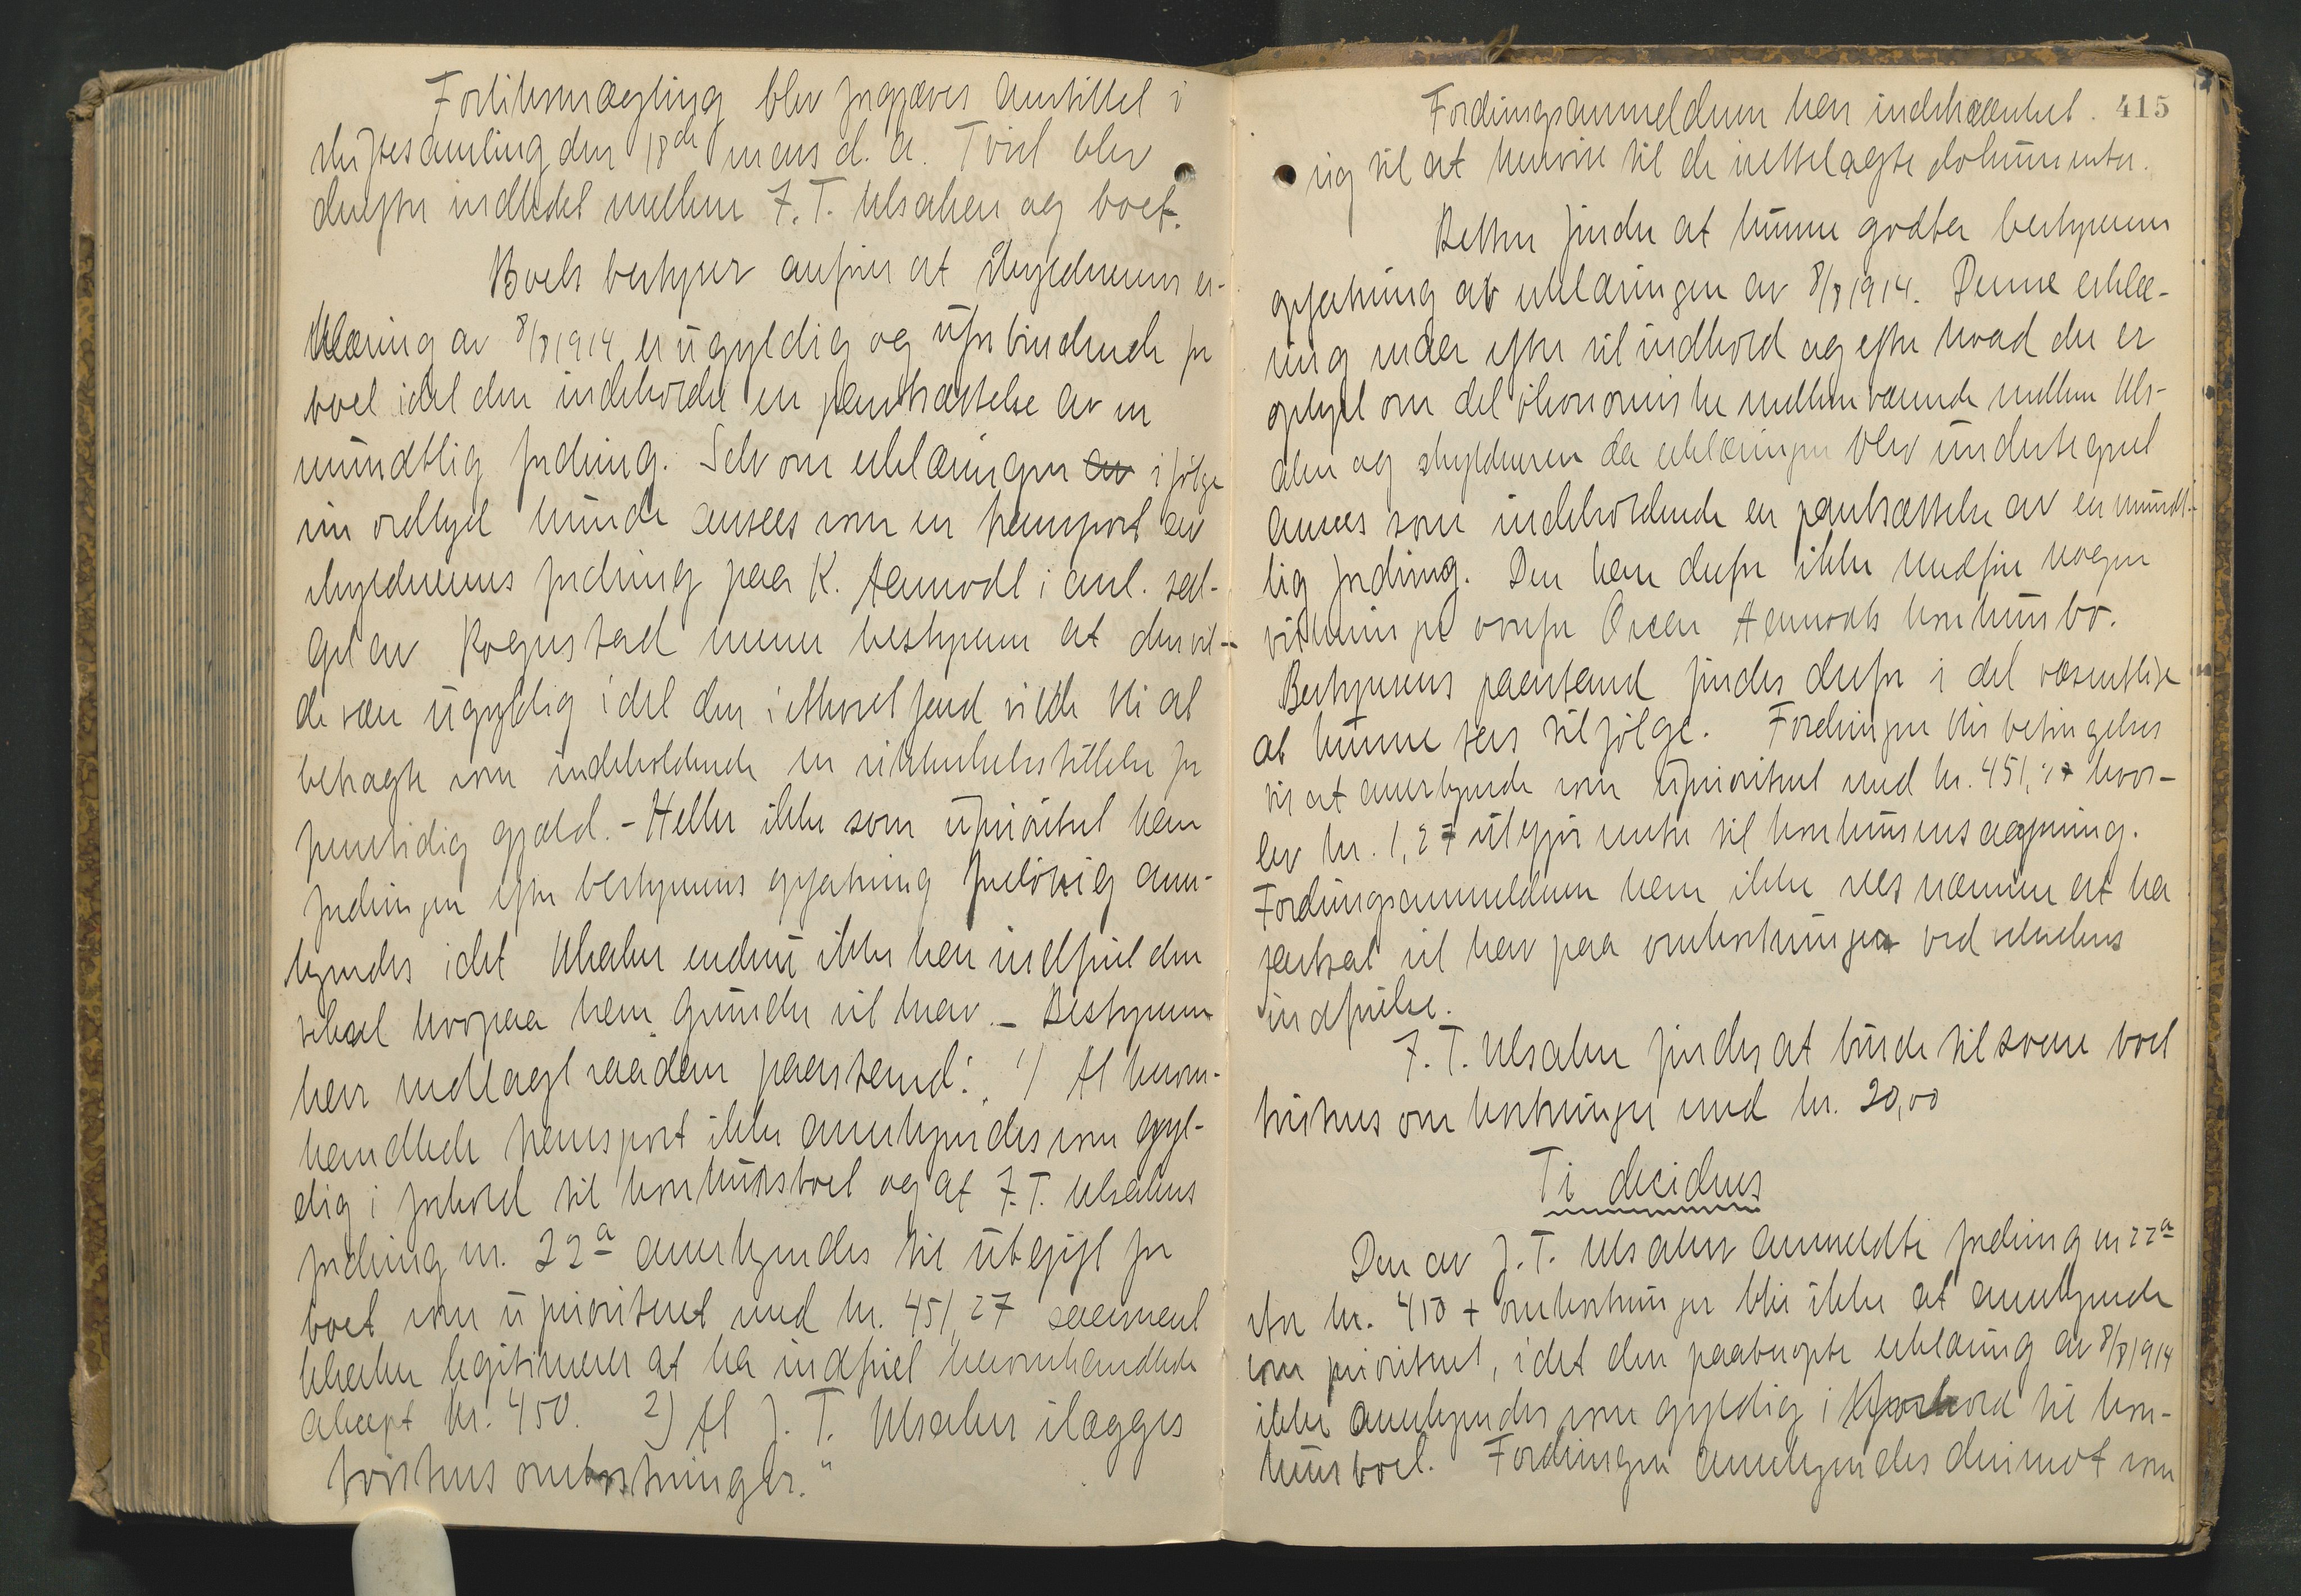 Forliksmægling blev forgjæves anstillet i
skiftesamling den 18de mars d. a. Tvist blev
derefter indledet mellem J. T. Ulsaker og boet.
Boets bestyrer anfører at skyldnerens er-
klæring av 8/8 1914 er ugyldig og uforbindende for
boet idet den indeholder en pantsættelse av en
mundtlig fordring. Selv om erklæringen av ifølge
sin ordlyd kunde ansees som en transport av
skyldnerens fordring paa K. Aamodt i anl. sal-
get av Rognstad mener bestyreren at den vil-
de være ugyldig idet den i ethvert fald vilde bli at
betragte som indeholdende en sikkerhetsstillelse for
samtidig gjæld. - Heller ikke som uprioritert kan
fordringen efter bestyrerens opfatning foreløbig aner-
kjendes idet Ulsaker endnu ikke har indfriet den
veksel hvorpaa han grunder sit krav. - Bestyreren
har nedlagt saadan paastand: 1) At herom-
handlede transport ikke anerkjendes som gyl-
dig i forhold til konkursboet og at J. T. Ulsakers
fordring nr. 22a anerkjendes til utgift for
boet som uprioritert med kr. 451,27 saasnart
Ulsaker legitimerer at ha indfriet heromhandlede
aksept kr. 450. 2) At J. T. Ulsaker ilægges
tvistens omkostninger."
415
Fordringsanmelderen har indskrænket
sig til at henvise til de irettelagte dokumenter.
Retten finder at kunne godta bestyrerens
opfatning av erklæringen av 8/8 1914. Denne erklæ-
ring maa efter sit indhold og efter hvad der er
oplyst om det økonomiske mellemværende mellem Uls-
aker og skyldneren da erklæringen blev undertegnet
ansees som indeholdende en pantsættelse av en mundt-
lig fordring. Den kan derfor ikke medføre nogen
virkning for overfor Oscar Aamodts konkursbo.
Bestyrerens paastand findes derfor i det væsentlige
at kunne tas tilfølge. Fordringen blir betingelses-
vis at anerkjende som uprioritert med kr. 451,27 hvor-
av kr. 1,27 utgjør renter til konkursens aapning.
Fordringsanmelderen kan ikke sees nærmere at ha
fastsat sit krav paa omkostninger ved vekselens
indfrielse.
J. T. Ulsaker findes at burde tilsvare boet
tvistens omkostninger med kr. 20,00
Ti decideres
Den av J. T. Ulsaker anmeldte fordring nr 22a
stor kr. 450 + omkostninger blir ikke at anerkjende
som prioritert, idet den paaberopte erklæring av 8/8 1914
ikke anerkjendes som gyldig i forhold til kon-
kursboet. Fordringen anerkjendes derimot som